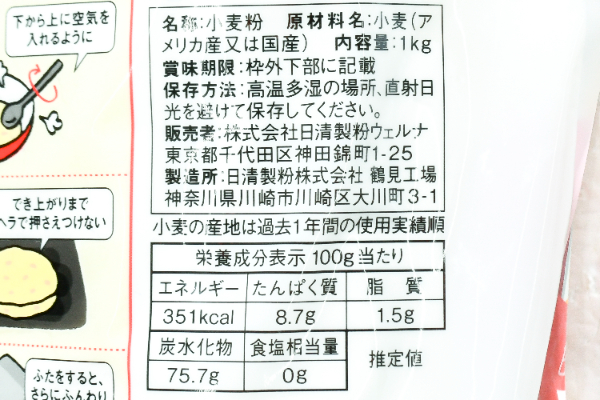 下から上に空気を
入れるように
でき上がりまで
ヘラで押さえつけない
ふたをすると、
さらにふんわり
名称:小麦粉 原材料名:小麦(ア
メリカ産又は国産) 内容量:1kg
賞味期限:枠外下部に記載
保存方法:高温多湿の場所、直射日
光を避けて保存してください。
販売者:株式会社日清製粉ウェルナ
東京都千代田区神田錦町1-25
製造所:日清製粉株式会社 鶴見工場
神奈川県川崎市川崎区大川町3-1
小麦の産地は過去1年間の使用実績順
栄養成分表示 100g当たり
エネルギー たんぱく質 脂質
351kcal 8.7g 1.5g
炭水化物 食塩相当量 推定値
75.7g 0g